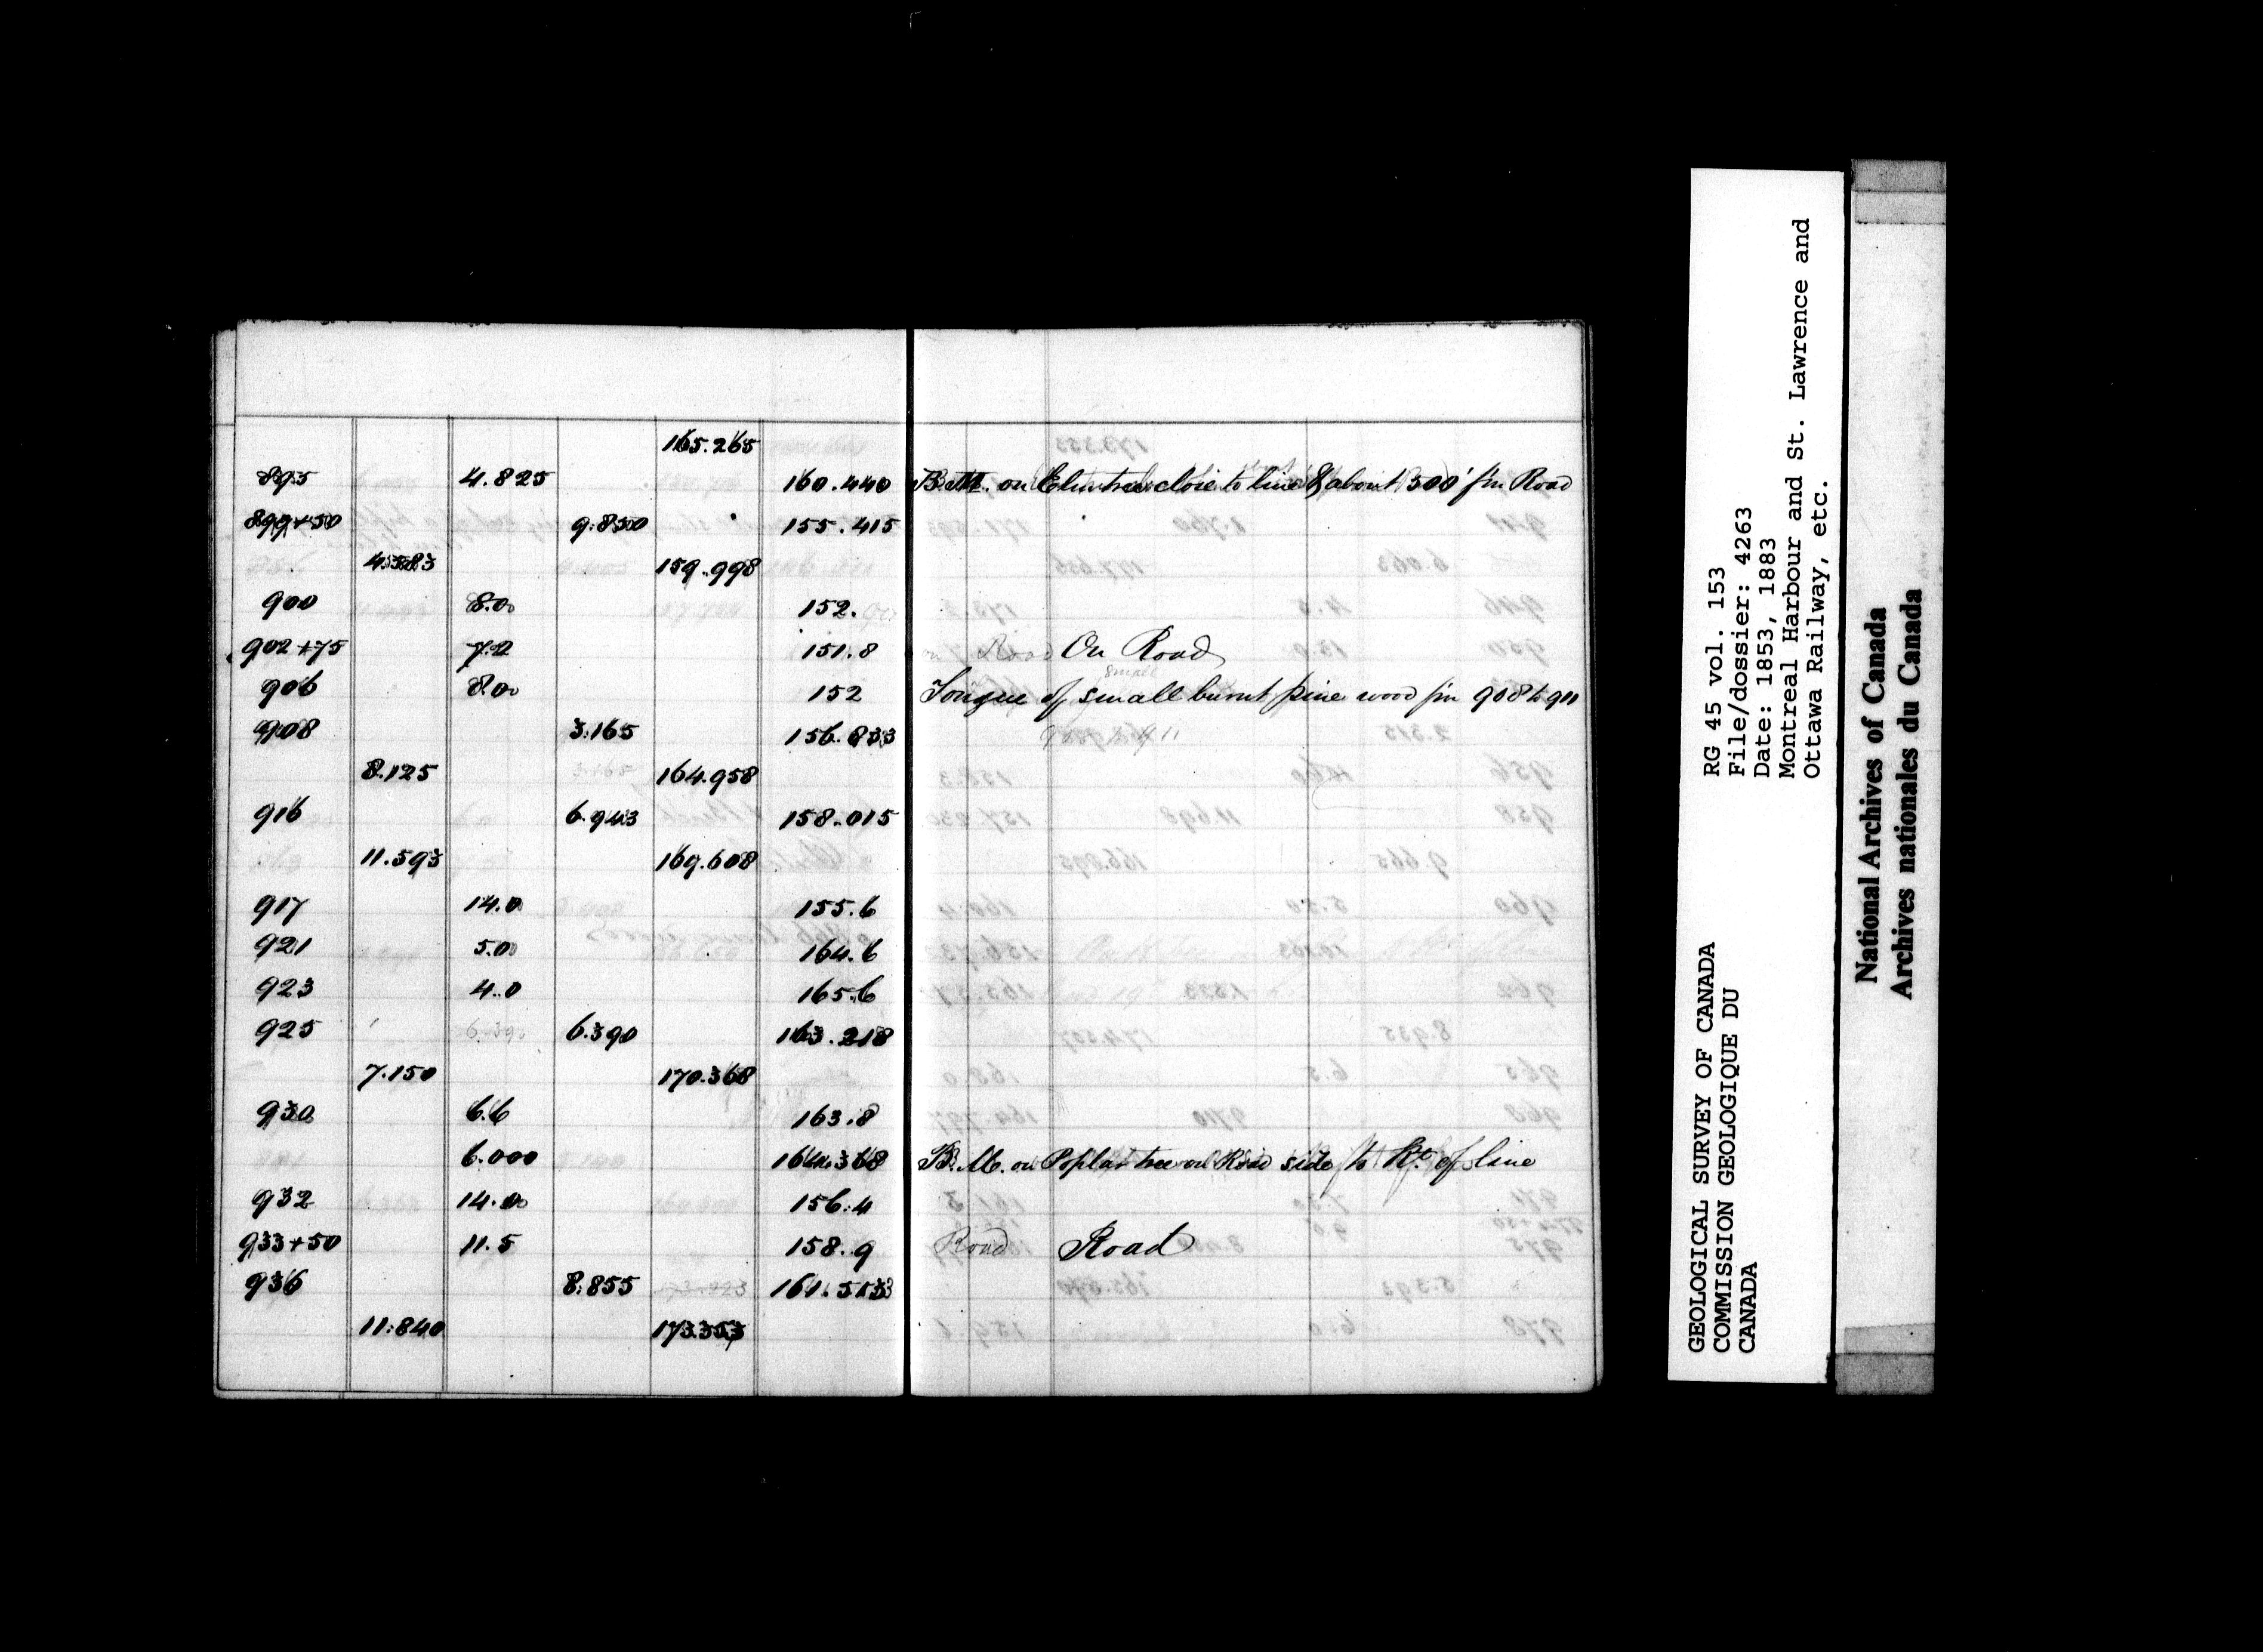 165.265
895 4.825 160.440 B.M. on Elm tree close to line & about 300' fm Road
899+50 9.850 155.415
4.583 159.998
900 8.0 152.
902+75 7.2 151.8 On Road
906 8.00 152 Tongue of small burnt pine wood fm 908 to 911
908 3.165 156.833
8.125 164.958
916 6.943 158.015
11.593 169.608
917 14.0 155.6
921 5.00 164.6
923 4.0 165.6
925 6.390 163.218
7.150 170.368
930 6.6 163.8
6.000 164.368 B.M. on Poplar tree on Road side to Rt. of line
932 14.00 156.4
933+50 11.5 158.9 Road Road
936 8.855 161.513
11.840 173.353
GEOLOGICAL SURVEY OF CANADA
COMMISSION GEOLOGIQUE DU
CANADA
RG 45 vol. 153
File/dossier: 4263
Date: 1853, 1883
Montreal Harbour and St. Lawrence and
Ottawa Railway, etc.
National Archives of Canada
Archives nationales du Canada